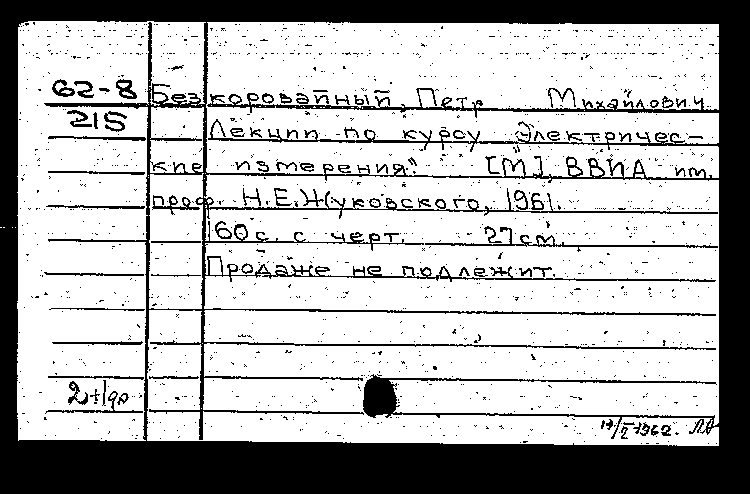 62-8 Безкоровайный, Петр Михайлович
215 Лекции по курсу "Электричес-
кие измерения". [М], ВВИА им.
проф. Н.Е.Жуковского, 1961.
160 с. с черт. 27 см.
Продаже не подлежит.